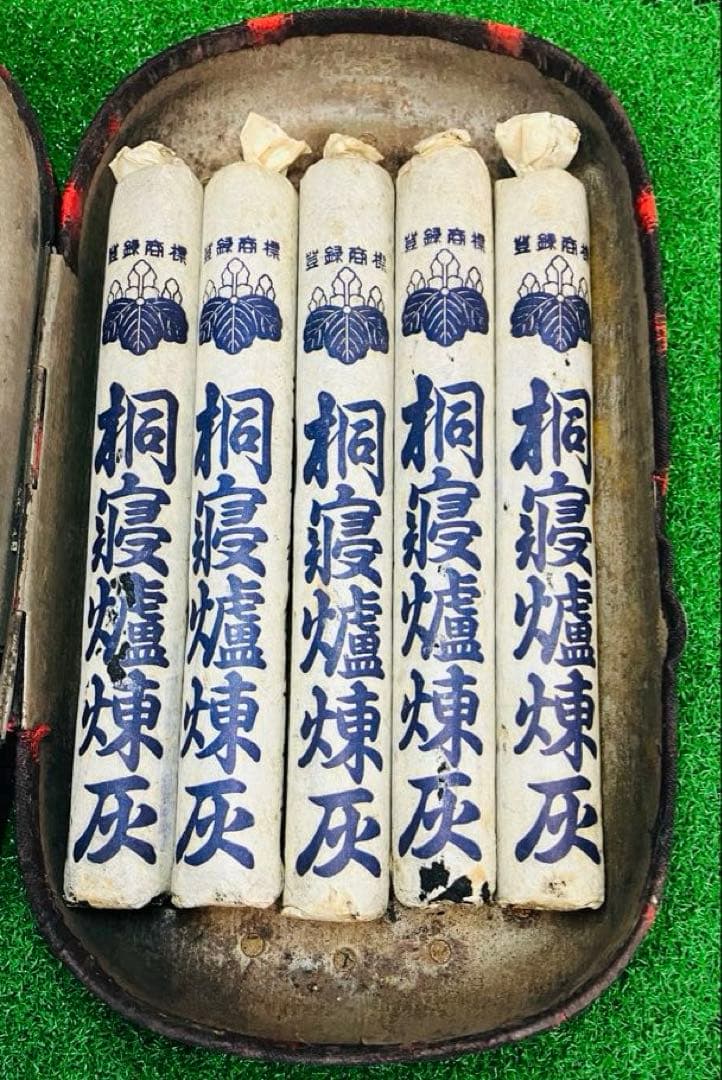 登録商標
桐寝爐煉灰
登録商標
桐寝爐煉灰
登録商標
桐寝爐煉灰
登録商標
桐寝爐煉灰
登録商標
桐寝爐煉灰